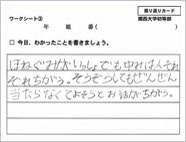 ワークシート③
振り返りカード
関西大学初等部
年 組 番（ ）
□ 今日、わかったことを書きましょう。
ほねぐみがいっしょでも中みは人それ
ぞれちがう。そうぞうしてもぜんぜん
当たらなくてよそうとお話がちがう。